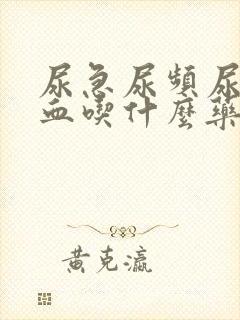 尿急尿頻尿
血喫什麼藥
黃克瀛